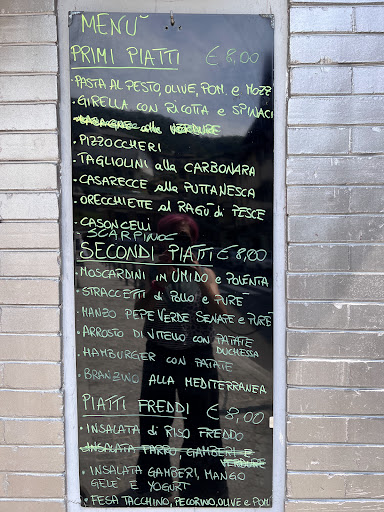 MENU`
PRIMI PIATTI € 8,00
• PASTA AL PESTO, OLIVE, POM. e MOZZ
• GIRELLA CON RICOTTA e SPINACI
• LASAGNE alle VERDURE
• PIZZOCCHERI
• TAGLIOLINI alla CARBONARA
• CASARECCE alla PUTTANESCA
• ORECCHIETTE al RAGÙ di PESCE
CASONCELLI
SCARPINOC
SECONDI PIATTI € 8,00
• MOSCARDINI in UMIDO e POLENTA
• STRACCETTI di POLLO e PURÈ
• MANZO PEPE VERDE SENAPE e PURÈ
• ARROSTO DI VITELLO CON PATATE
DUCHESSA
• HAMBURGER CON PATATE
• BRANZINO ALLA MEDITERRANEA
PIATTI FREDDI € 8,00
• INSALATA di RISO FREDDO
• INSALATA FARRO, GAMBERI E
VERDURE
• INSALATA GAMBERI, MANGO
GELE E YOGURT
• FESA TACCHINO, PECORINO, OLIVE e POM